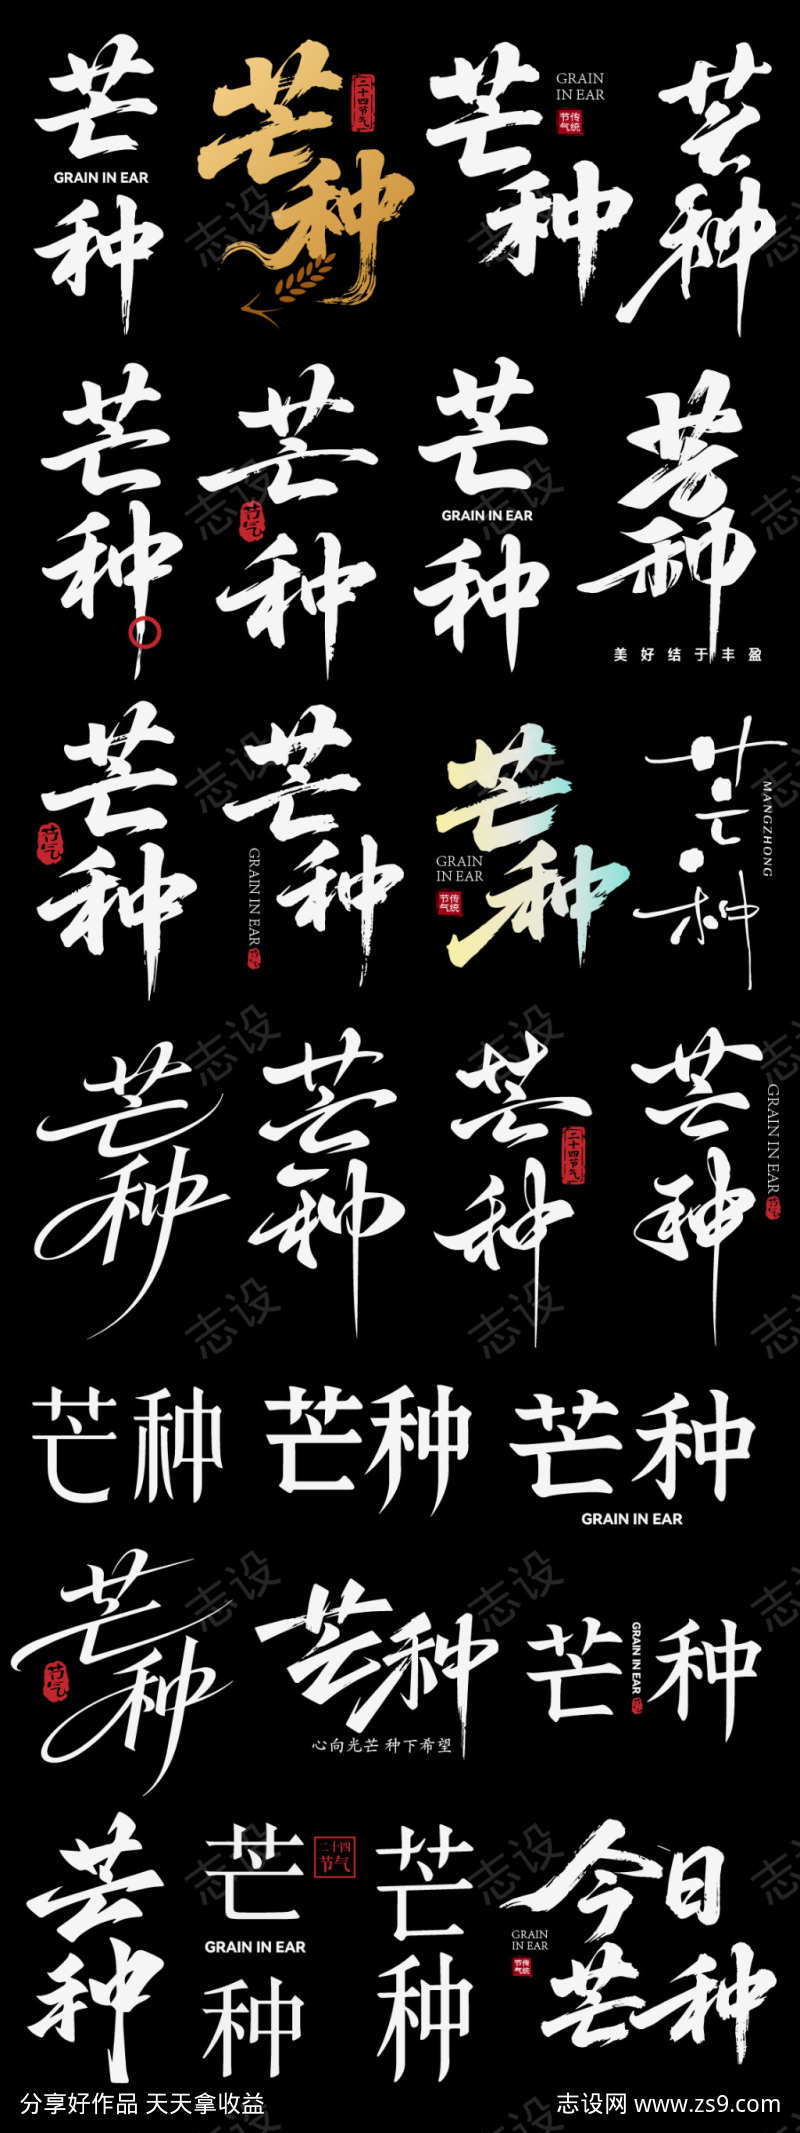 芒
GRAIN IN EAR
种
芒种
二十四节气
芒种
GRAIN
IN EAR
传统
节气
芒种
芒种
芒种
节气
芒
GRAIN IN EAR
种
芒种
美好结于丰盈
芒种
节气
芒种
GRAIN IN EAR
节气
芒种
GRAIN
IN EAR
传统
节气
芒种
MANGZHONG
芒种
芒种
芒种
二十四节气
芒种
GRAIN IN EAR
节气
芒种
芒种
芒种
GRAIN IN EAR
芒种
节气
芒种
心向光芒 种下希望
芒种
GRAIN IN EAR
节气
芒种
芒
二十四
节气
GRAIN IN EAR
种
芒种
今日
GRAIN
IN EAR
传统
节气
芒种
志设
分享好作品 天天拿收益
志设网 www.zs9.com